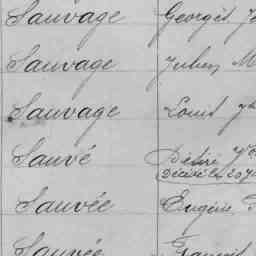 Sauvage Georges
Sauvage Julien M
Sauvage Louis
Sauvé Désiré
Décédé le 20
Sauvée Eugène
Sauvée François